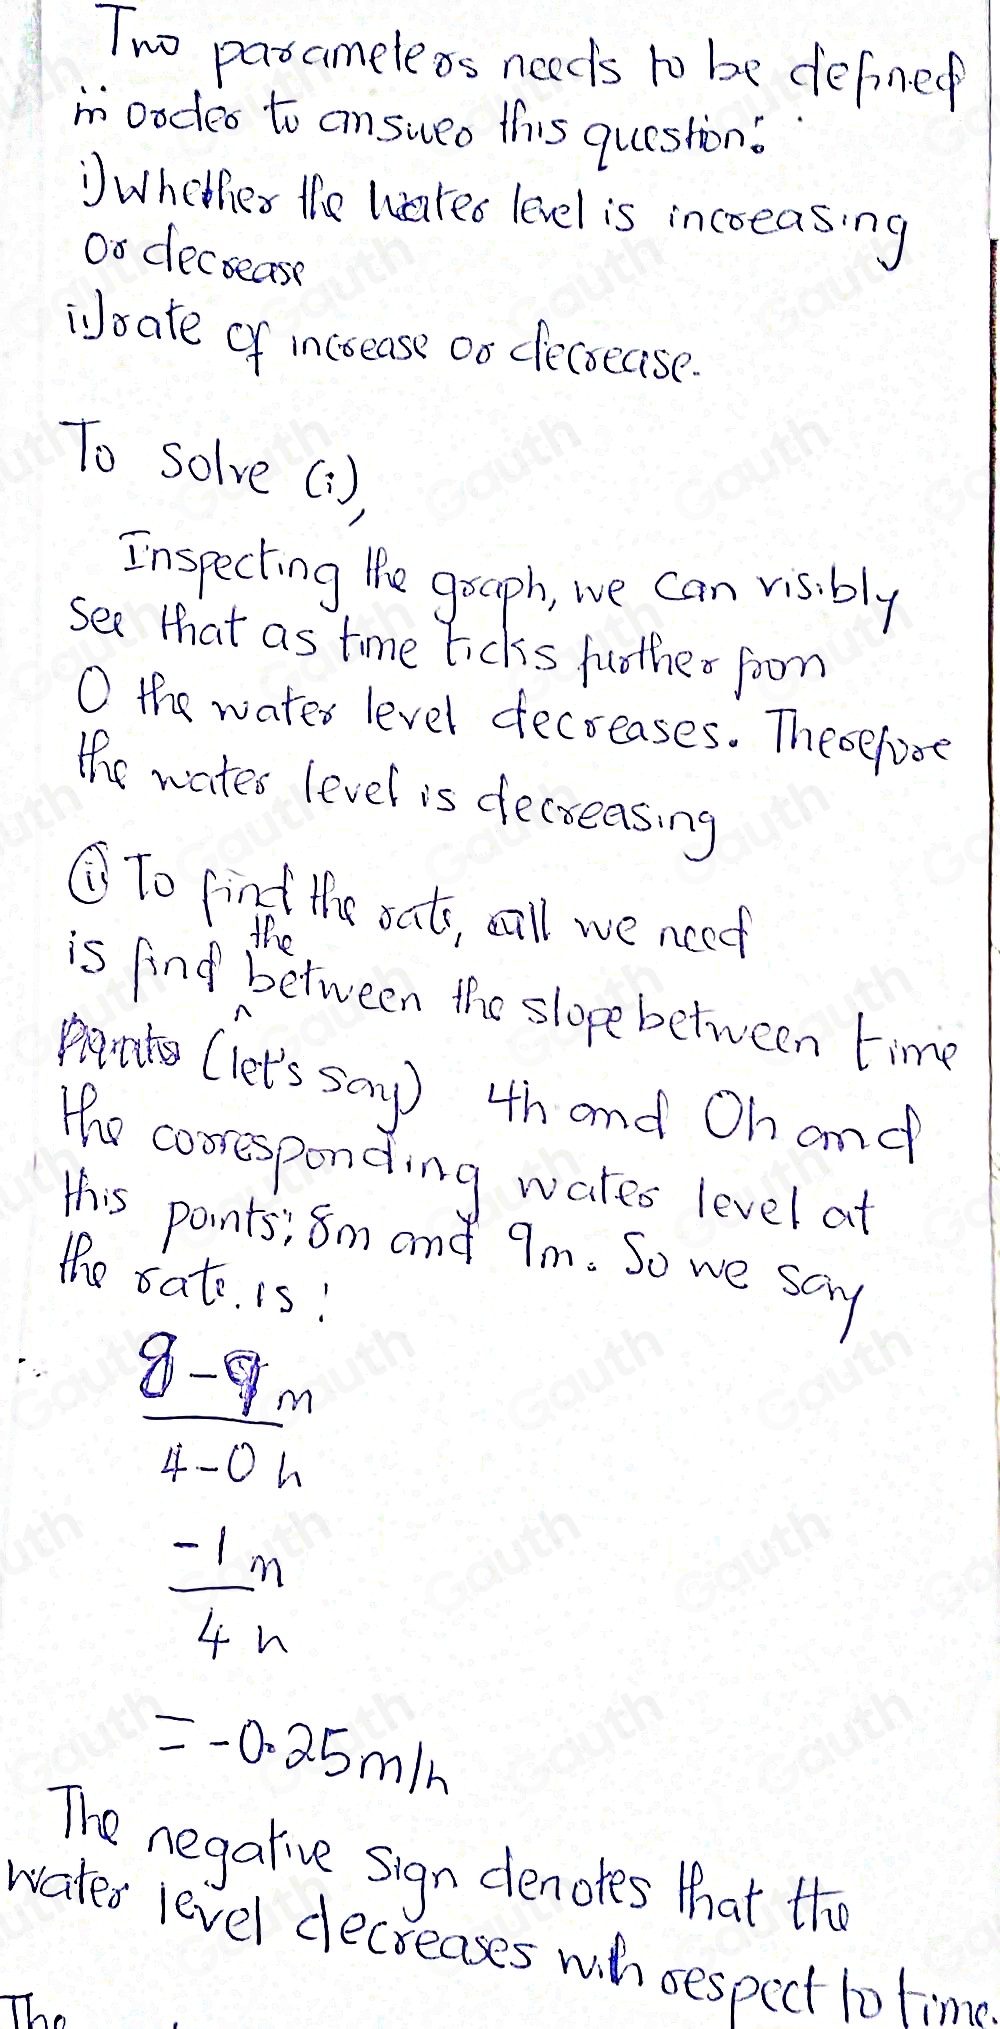 Two parameters needs to be defined
in order to answer this question:
i) Whether the water level is increasing
or decrease
ii) rate of increase or decrease.
To solve (i),
Inspecting the graph, we can visibly
see that as time ticks further from
0 the water level decreases. Therefore
the water level is decreasing
ii To find the rate, all we need
is find the between the slope between time
(let's say) 4h and 0h and
the corresponding water level at
this points; 8m and 9m. So we say
the rate is:
8-9 m
4-0 h
-1 m
4 h
= -0.25 m/h
The negative sign denotes that the
water level decreases with respect to time.
The